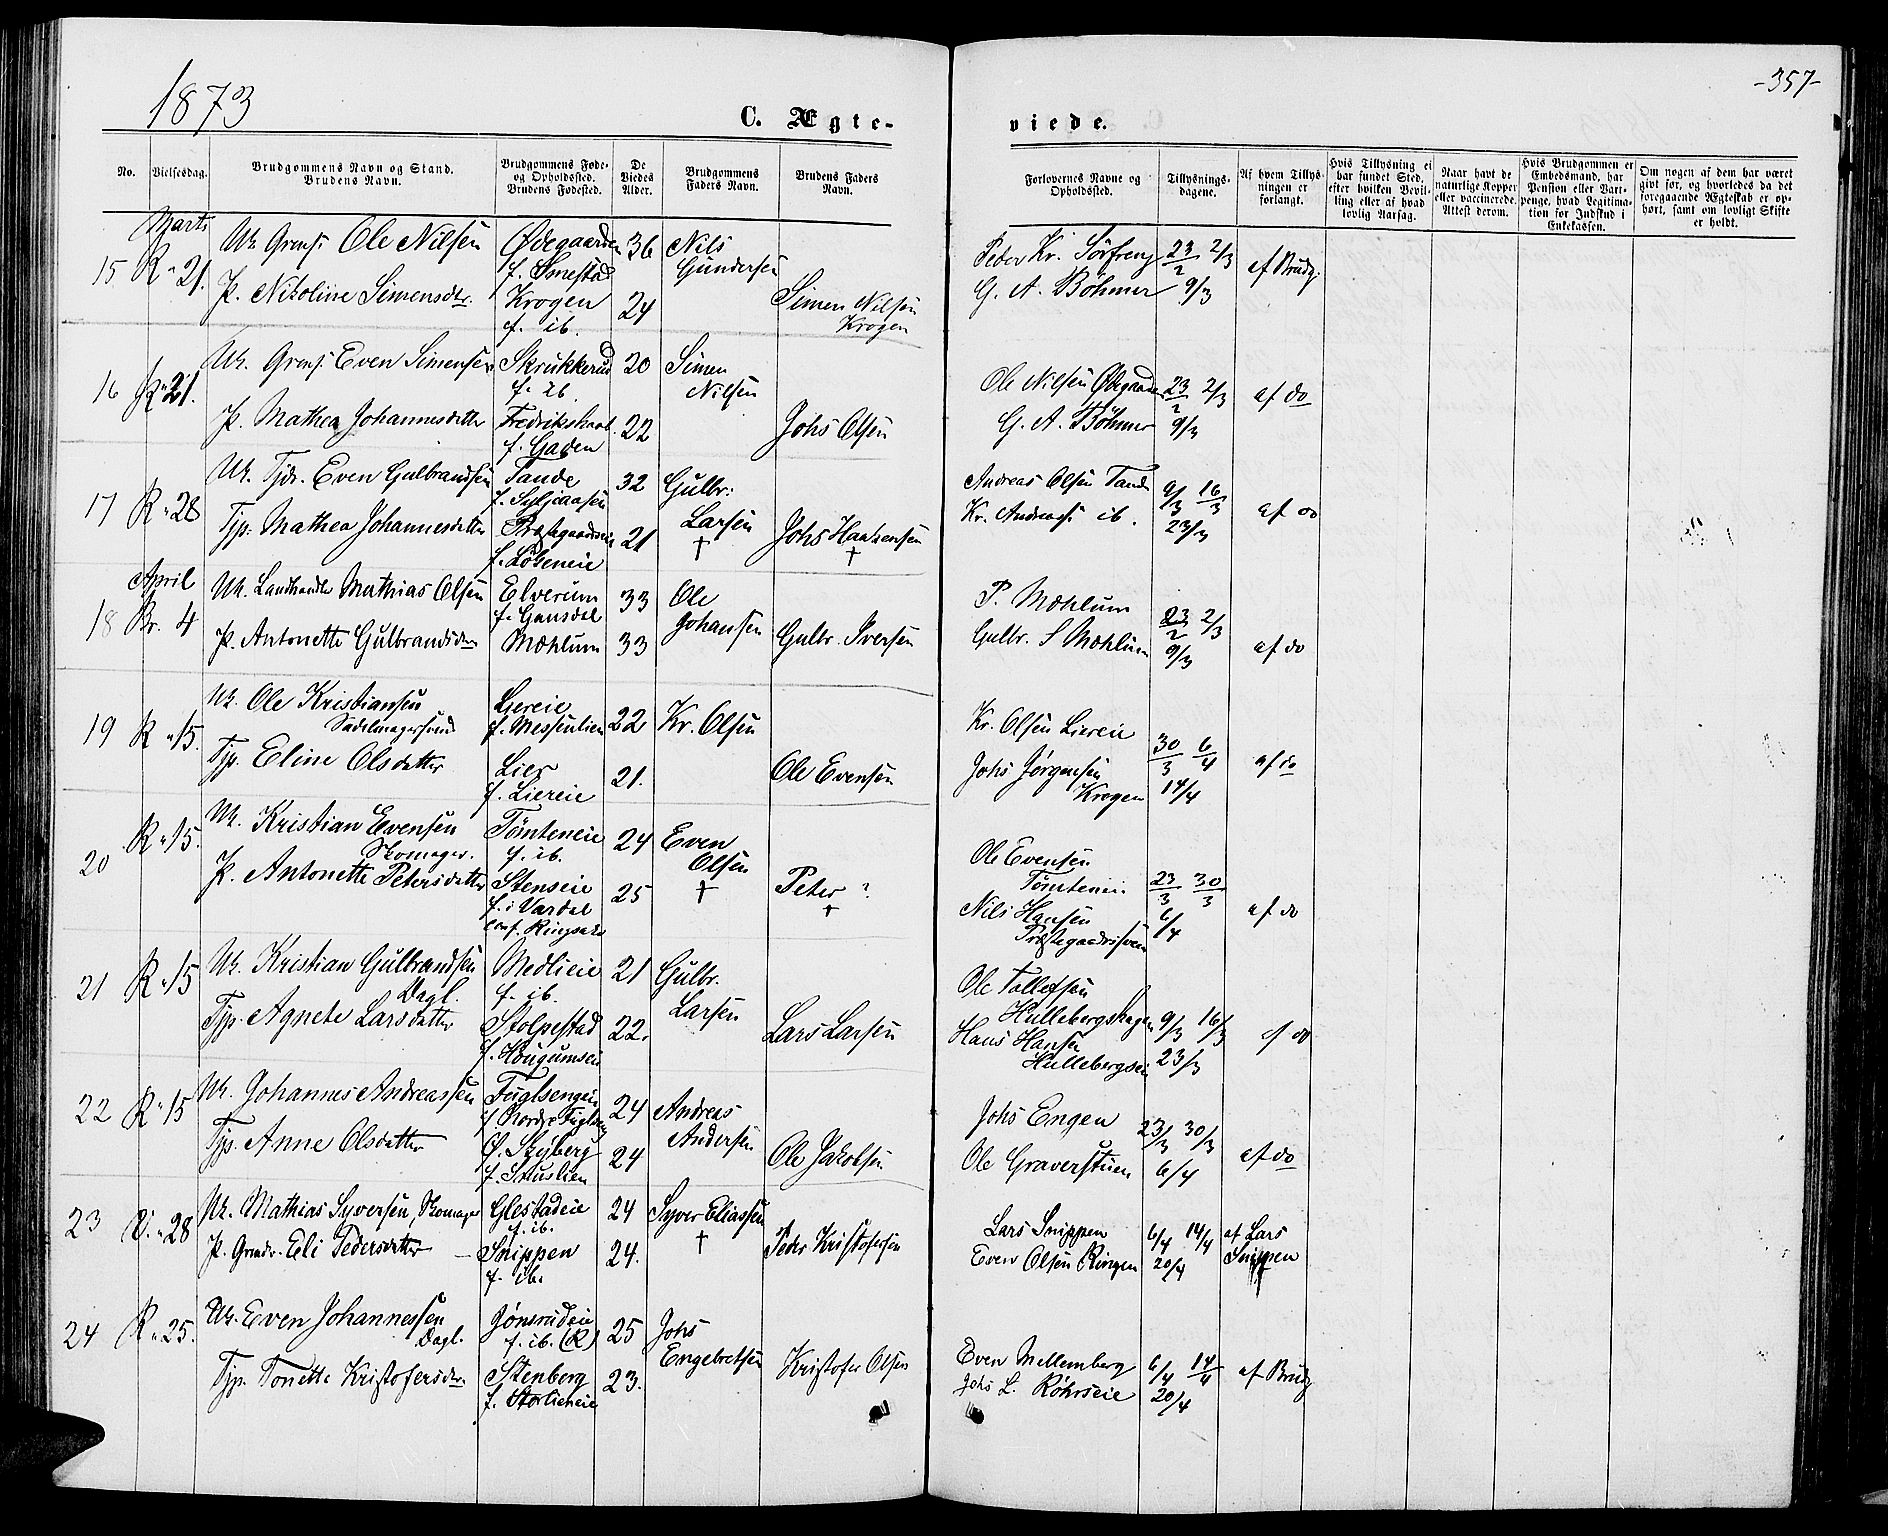 1873
-357-
C. Ægte-
viede.
No.
Vielsesdag.
Brudgommens Navn og Stand.
Brudens Navn.
Brudgommens Føde-
og Opholdssted.
Brudens Fødested.
De
Viedes
Alder.
Brudgommens
Faders Navn.
Brudens Faders
Navn.
Forlovernes Navne og
Opholdssted.
Tillysnings-
dagene.
Af hvem Tillys-
ningen er
forlangt.
Hvis Tillysning ei
har fundet Sted,
efter hvilken Bevil-
ling eller af hvad
lovlig Aarsag.
Naar havt de
naturlige Kopper
eller vaccinerede.
Attest derom.
Hvis Brudgommen er
Embedsmand, har
Pension eller Vart-
penge, hvad Legitima-
tion for Indskud i
Enkekassen.
Om nogen af dem har været
gift før, og hvorledes da det
foregaaende Ægteskab er op-
hørt, samt om lovligt Skifte
er holdt.
Marts
15 R " 21.
Uk. Grmsj. Ole Nilsen
P. Nikoline Simensdtr.
Ødegaarden
f. Smestad
Krogen
f. ib.
36
24
Nils
Gundersen
Simen Nilsen
Krogen
Peder Kr. Sörfreng
G. A. Böhmer
23/2 2/3
9/3
af Brudg.
16 R " 21.
Uk. Grmsj. Even Simensen
P. Mathea Johannesdatter
Skrukkerud
f. ib.
Fredrikshaal.
f. Gaden
20
22
Simen
Nilsen
Johs Olsen
Ole Nilsen Ødegaarden
G. A. Böhmer
23/2 2/3
9/3
af do
17 R " 28
Uk. Tjdr. Even Gulbrandsen
Tjp. Mathea Johannesdatter
Tande
f. Syljuaasen
Præstegaardseie
f. Löbeneie
32
21
Gulbr:
Larsen
†
Johs Haakensen
†
Andreas Olsen Tande
Kr. Andreass. ib.
9/3 16/3
23/3
af do
April
18 Br. 4
Uk. Landhandler Mathias Olsen
P. Antonette Gulbrandsdtr
Elverum
f. Gausdal
Mæhlum
33
33
Ole
Johansen
Gulbr. Iversen
P. Mæhlum
Gulbr. S Mæhlum
23/2 2/3
9/3
af do
19 R " 15.
Uk. Ole Kristiansen
Sadelmagersvend
Tjp. Eline Olsdatter
Liereie
f. Messenlien
Lier
f. Liereie
22
21.
Kr. Olsen
Ole Evensen
Kr. Olsen Liereie
Johs Jørgensen
Krogen
30/3 6/4
14/4
af do
20 R " 15.
Uk. Kristian Evensen
Skomager.
P. Antonette Petersdatter
Tömteneie
f. ib.
Stenseie
f. i Vardal
conf. Ringsaker
24
25
Even
Olsen
†
Peter ?
†
Ole Evensen
Tömteneie
Nils Hansen
Præstegaardssveen
23/3 30/3
6/4
af do
21 R " 15
Uk. Kristian Gulbrandsen
Dagl.
Tjp. Agnete Larsdatter
Medlieie
f. ib.
Stolpestad
f. Hougumseie
21
22.
Gulbr.
Larsen
Lars Larsen
Ole Tollefsen
Hullebergshagen
Hans Hansen
Hullebergseie
9/3 16/3
23/3
af do
22 R " 15
Uk. Johannes Andreassen
Tjp. Anne Olsdatter
Fuglsengen
f. Nordre Fuglseng
Ø. Skyberg
f. Stuslien
24
24
Andreas
Andersen
Ole Jakobsen
Johs Engen
Ole Graverstuen
23/3 30/3
6/4
af do
23 V. " 28
Uk. Mathias Syversen, Skomager
P. Grmdr. Eli Pedersdatter
Glestadeie
f. ib.
Snippen
f. ib.
24
24.
Syver Eliassen
†
Peder Kristofersen
Lars Snippen
Even Olsen Ringen
6/4 14/4
20/4
af Lars
Snippen
24 R " 25.
Uk. Even Johannessen
Dagl.
Tjp. Tonette Kristofersdtr
Jønsrudeie
f. ib. (R)
Stenberg
f. Storlieneie
25
23.
Johs
Engebretsen
Kristofer Olsen
Even Mellemberg
Johs L. Röhrseie
6/4 14/4
20/4
af Brudg